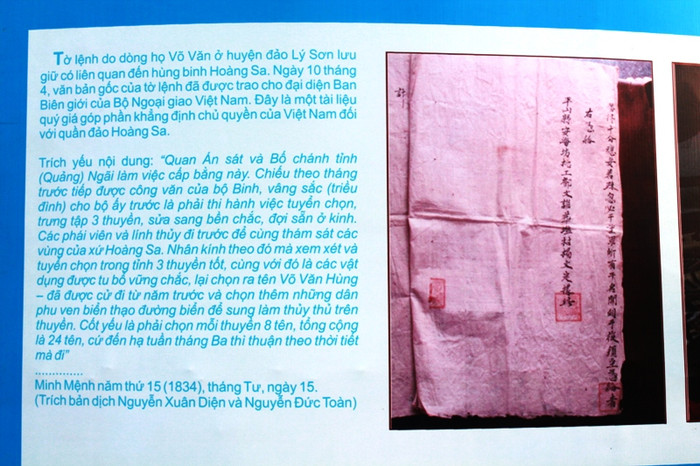 Tờ lệnh do dòng họ Võ Văn ở huyện đảo Lý Sơn lưu
giữ có liên quan đến hùng binh Hoàng Sa. Ngày 10 tháng
4, văn bản gốc của tờ lệnh đã được trao cho đại diện Ban
Biên giới của Bộ Ngoại giao Việt Nam. Đây là một tài liệu
quý giá góp phần khẳng định chủ quyền của Việt Nam đối
với quần đảo Hoàng Sa.
Trích yếu nội dung: “Quan Án sát và Bố chánh tỉnh
(Quảng) Ngãi làm việc cấp bằng này. Chiếu theo tháng
trước tiếp được công văn của bộ Binh, vâng sắc (triều
đình) cho bộ ấy trước là phải thi hành việc tuyển chọn,
trưng tập 3 thuyền, sửa sang bền chắc, đợi sẵn ở kinh.
Các phái viên và lính thủy đi trước để cùng thám sát các
vùng của xứ Hoàng Sa. Nhân kính theo đó mà xem xét và
tuyển chọn trong tỉnh 3 thuyền tốt, cùng với đó là các vật
dụng được tu bổ vững chắc, lại chọn ra tên Võ Văn Hùng
– đã được cử đi từ năm trước và chọn thêm những dân
phu ven biển thạo đường biển để sung làm thủy thủ trên
thuyền. Cốt yếu là phải chọn mỗi thuyền 8 tên, tổng cộng
là 24 tên, cứ đến hạ tuần tháng Ba thì thuận theo thời tiết
mà đi”
..............
Minh Mệnh năm thứ 15 (1834), tháng Tư, ngày 15.
(Trích bản dịch Nguyễn Xuân Diện và Nguyễn Đức Toàn)
右憑給